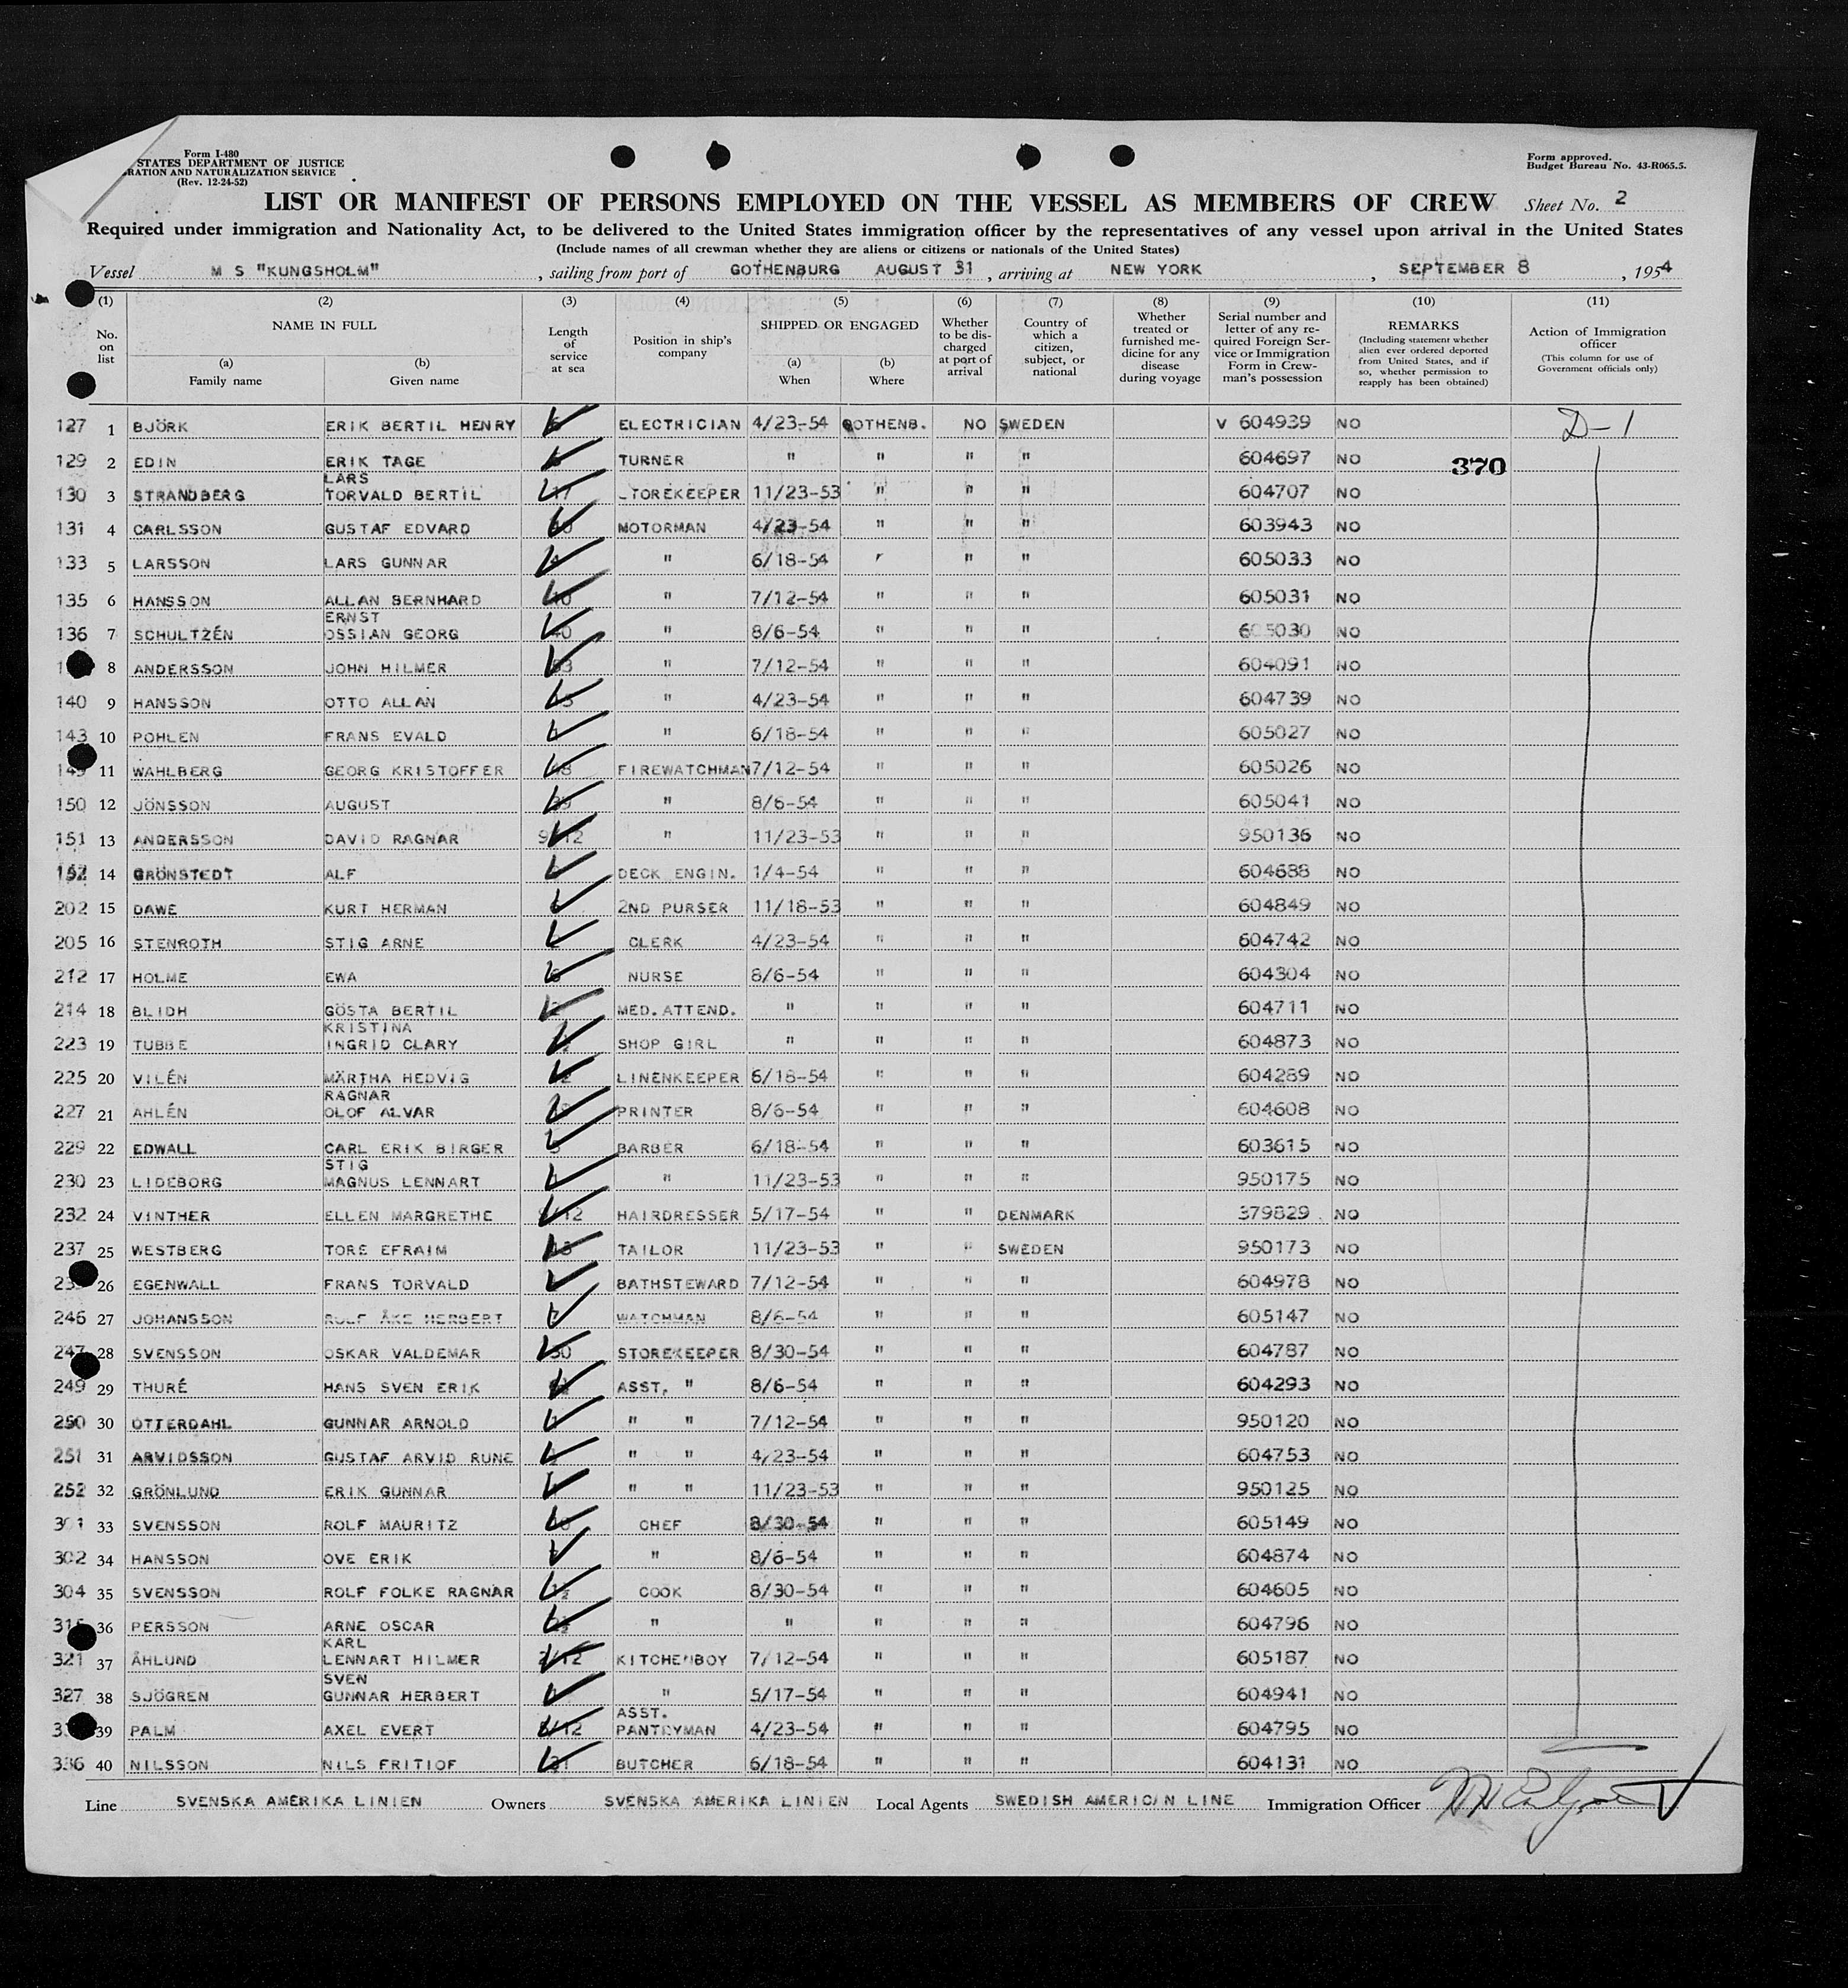 Form I-480
STATES DEPARTMENT OF JUSTICE
RATION AND NATURALIZATION SERVICE
(Rev. 12-24-52)
Form approved.
Budget Bureau No. 43-R065.5.
LIST OR MANIFEST OF PERSONS EMPLOYED ON THE VESSEL AS MEMBERS OF CREW Sheet No. 2
Required under immigration and Nationality Act, to be delivered to the United States immigration officer by the representatives of any vessel upon arrival in the United States
(Include names of all crewman whether they are aliens or citizens or nationals of the United States)
Vessel M S "KUNGSHOLM" , sailing from port of GOTHENBURG AUGUST 31 , arriving at NEW YORK , SEPTEMBER 8 , 1954
(1) (2) (3) (4) (5) (6) (7) (8) (9) (10) (11)
No. on list NAME IN FULL (a) Family name (b) Given name Length of service at sea Position in ship's company SHIPPED OR ENGAGED (a) When (b) Where Whether to be discharged at port of arrival Country of which a citizen, subject, or national Whether treated or furnished medicine for any disease during voyage Serial number and letter of any required Foreign Service or Immigration Form in Crewman's possession REMARKS (Including statement whether alien ever ordered deported from United States, and if so, whether permission to reapply has been obtained) Action of Immigration officer (This column for use of Government officials only)
127 1 BJÖRK ERIK BERTIL HENRY ELECTRICIAN 4/23-54 GOTHENB. NO SWEDEN V 604939 NO D-1
129 2 EDIN ERIK TAGE TURNER " " " " 604697 NO 370
130 3 STRANDBERG LARS TORVALD BERTIL 17 STOREKEEPER 11/23-53 " " " 604707 NO
131 4 CARLSSON GUSTAF EDVARD MOTORMAN 4/23-54 " " " 603943 NO
133 5 LARSSON LARS GUNNAR " 6/18-54 " " " 605033 NO
135 6 HANSSON ALLAN BERNHARD " 7/12-54 " " " 605031 NO
136 7 SCHULTZÉN ERNST OSSIAN GEORG " 8/6-54 " " " 605030 NO
8 ANDERSSON JOHN HILMER " 7/12-54 " " " 604091 NO
140 9 HANSSON OTTO ALLAN " 4/23-54 " " " 604739 NO
143 10 POHLEN FRANS EVALD " 6/18-54 " " " 605027 NO
149 11 WAHLBERG GEORG KRISTOFFER FIREWATCHMAN 7/12-54 " " " 605026 NO
150 12 JÖNSSON AUGUST " 8/6-54 " " " 605041 NO
151 13 ANDERSSON DAVID RAGNAR 9/12 " 11/23-53 " " " 950136 NO
152 14 GRÖNSTEDT ALF DECK ENGIN. 1/4-54 " " " 604688 NO
202 15 DAWE KURT HERMAN 2ND PURSER 11/18-53 " " " 604849 NO
205 16 STENROTH STIG ARNE CLERK 4/23-54 " " " 604742 NO
212 17 HOLME EWA NURSE 8/6-54 " " " 604304 NO
214 18 BLIDH GÖSTA BERTIL MED. ATTEND. " " " " 604711 NO
223 19 TUBBE KRISTINA INGRID CLARY SHOP GIRL " " " " 604873 NO
225 20 VILÉN MÄRTHA HEDVIG LINENKEEPER 6/18-54 " " " 604289 NO
227 21 AHLÉN RAGNAR OLOF ALVAR PRINTER 8/6-54 " " " 604608 NO
229 22 EDWALL CARL ERIK BIRGER BARBER 6/18-54 " " " 603615 NO
230 23 LIDEBORG STIG MAGNUS LENNART " 11/23-53 " " " 950175 NO
232 24 VINTHER ELLEN MARGRETHE HAIRDRESSER 5/17-54 " " DENMARK 379829 NO
237 25 WESTBERG TORE EFRAIM TAILOR 11/23-53 " " SWEDEN 950173 NO
26 EGENWALL FRANS TORVALD BATHSTEWARD 7/12-54 " " " 604978 NO
246 27 JOHANSSON ROLF ÅKE HERBERT WATCHMAN 8/6-54 " " " 605147 NO
247 28 SVENSSON OSKAR VALDEMAR STOREKEEPER 8/30-54 " " " 604787 NO
249 29 THURÉ HANS SVEN ERIK ASST. " 8/6-54 " " " 604293 NO
250 30 OTTERDAHL GUNNAR ARNOLD " " 7/12-54 " " " 950120 NO
251 31 ARVIDSSON GUSTAF ARVID RUNE " " 4/23-54 " " " 604753 NO
252 32 GRÖNLUND ERIK GUNNAR " " 11/23-53 " " " 950125 NO
301 33 SVENSSON ROLF MAURITZ CHEF 8/30-54 " " " 605149 NO
302 34 HANSSON OVE ERIK " 8/6-54 " " " 604874 NO
304 35 SVENSSON ROLF FOLKE RAGNAR COOK 8/30-54 " " " 604605 NO
36 PERSSON ARNE OSCAR " " " " " 604796 NO
321 37 ÅHLUND KARL LENNART HILMER 2/12 KITCHENBOY 7/12-54 " " " 605187 NO
327 38 SJÖGREN SVEN GUNNAR HERBERT " 5/17-54 " " " 604941 NO
39 PALM AXEL EVERT ASST. PANTRYMAN 4/23-54 " " " 604795 NO
336 40 NILSSON NILS FRITIOF BUTCHER 6/18-54 " " " 604131 NO
Line SVENSKA AMERIKA LINIEN Owners SVENSKA AMERIKA LINIEN Local Agents SWEDISH AMERICAN LINE Immigration Officer